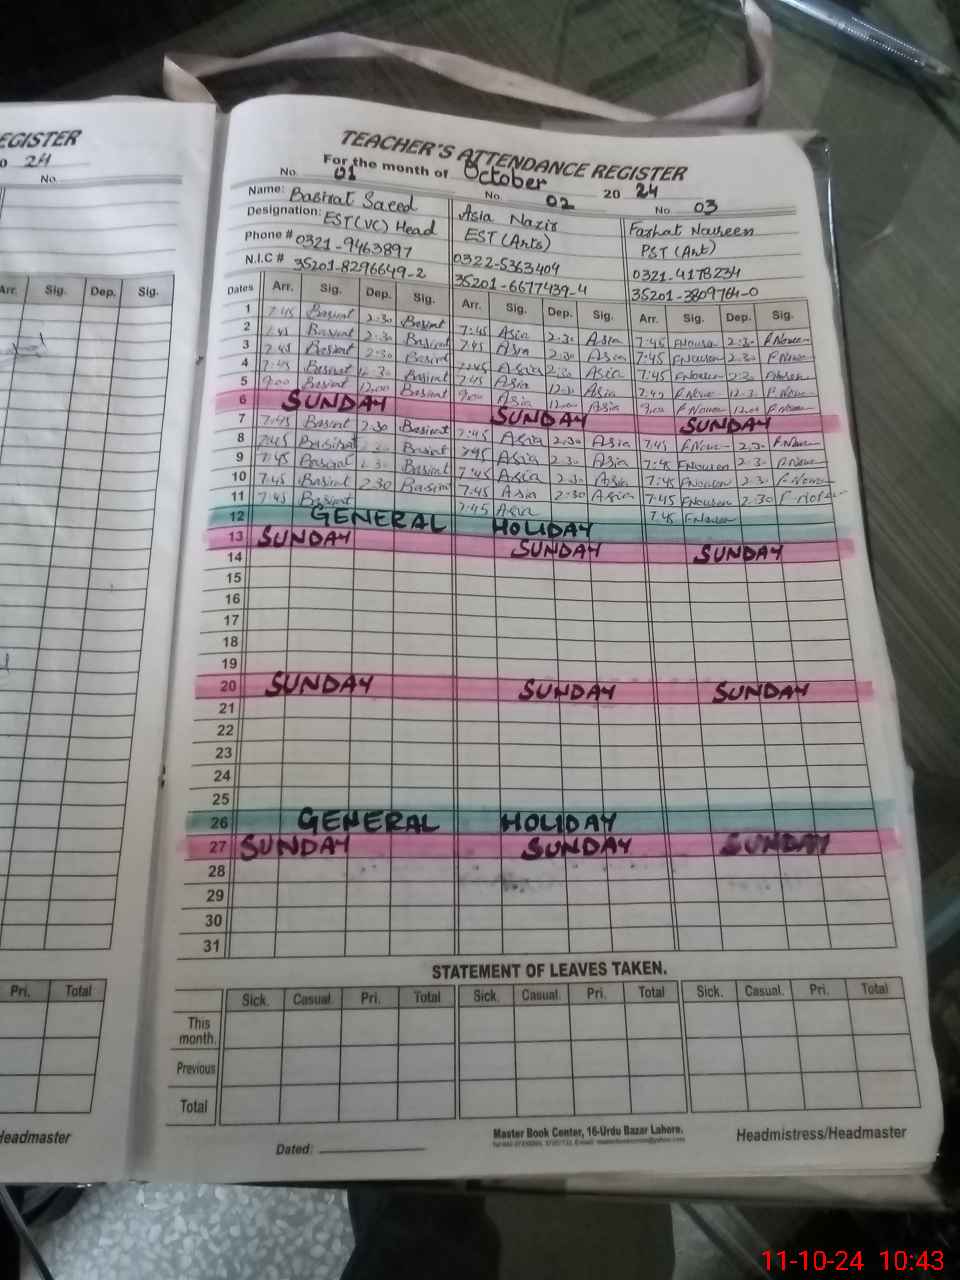 EGISTER
TEACHER'S ATTENDANCE REGISTER
For the month of October 20 24
24
No.
No. 01 No. 02 No 03
Name: Basirat Saeed Asia Nazir Farhat Naureen
Designation: EST(VC) Head EST (Arts) PST (Art)
Phone # 0321-9463897 0322-5363409 0321-4178234
N.I.C # 35201-8296649-2 35201-6677439-4 35201-3809764-0
Arr. Sig. Dep. Sig.
Dates Arr. Sig. Dep. Sig. Arr. Sig. Dep. Sig. Arr. Sig. Dep. Sig.
1 7:45 Basirat 2:30 Basirat 7:45 Asia 2:30 Asia 7:45 2:30
2 7:45 Basirat 2:30 Basirat 7:45 Asia 2:30 Asia 7:45 2:30
3 7:45 Basirat 2:30 Basirat 7:45 Asia 2:30 Asia 7:45 2:30
4 7:45 Basirat 12:30 Basirat 7:45 Asia 12:30 Asia 7:45 12:30
5 9:00 Basirat 12:00 Basirat 9:00 Asia 12:00 Asia 9:00 12:00
6 SUNDAY SUNDAY SUNDAY
7 7:45 Basirat 2:30 Basirat 7:45 Asia 2:30 Asia 7:45 2:30
8 7:45 Basirat 2:30 Basirat 7:45 Asia 2:30 Asia 7:45 2:30
9 7:45 Basirat 2:30 Basirat 7:45 Asia 2:30 Asia 7:45 2:30
10 7:45 Basirat 2:30 Basirat 7:45 Asia 2:30 Asia 7:45 2:30
11 7:45 Basirat 7:45 Asia 7:45
12 GENERAL HOLIDAY
13 SUNDAY SUNDAY SUNDAY
14
15
16
17
18
19
20 SUNDAY SUNDAY SUNDAY
21
22
23
24
25
26 GENERAL HOLIDAY
27 SUNDAY SUNDAY SUNDAY
28
29
30
31
STATEMENT OF LEAVES TAKEN.
Pri. Total
Sick. Casual. Pri. Total Sick. Casual. Pri. Total Sick. Casual. Pri. Total
This month.
Previous
Total
Headmaster
Dated:
Master Book Center, 16-Urdu Bazar Lahore.
Headmistress/Headmaster
11-10-24 10:43